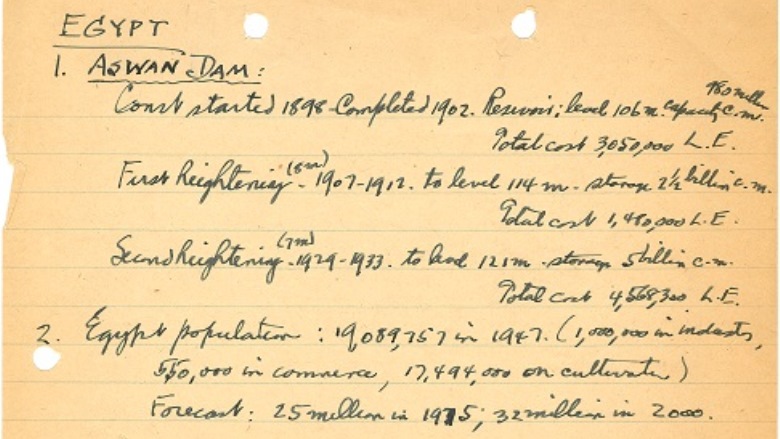 EGYPT
1. ASWAN DAM:
Const started 1898 - Completed 1902. Reservoir; level 106 m. capacity 980 million c.m.
Total cost 3,050,000 L.E.
First heightening (8m) - 1907-1912. to level 114 m - storage 2½ billion c.m.
Total cost 1,480,000 L.E.
Second heightening (7m) - 1929-1933. to level 121 m - storage 5 billion c.m.
Total cost 4,568,300 L.E.
2. Egypt population: 19,089,757 in 1947. (1,000,000 in industry,
550,000 in commerce, 17,494,000 on cultivation)
Forecast: 25 million in 1975; 32 million in 2000.